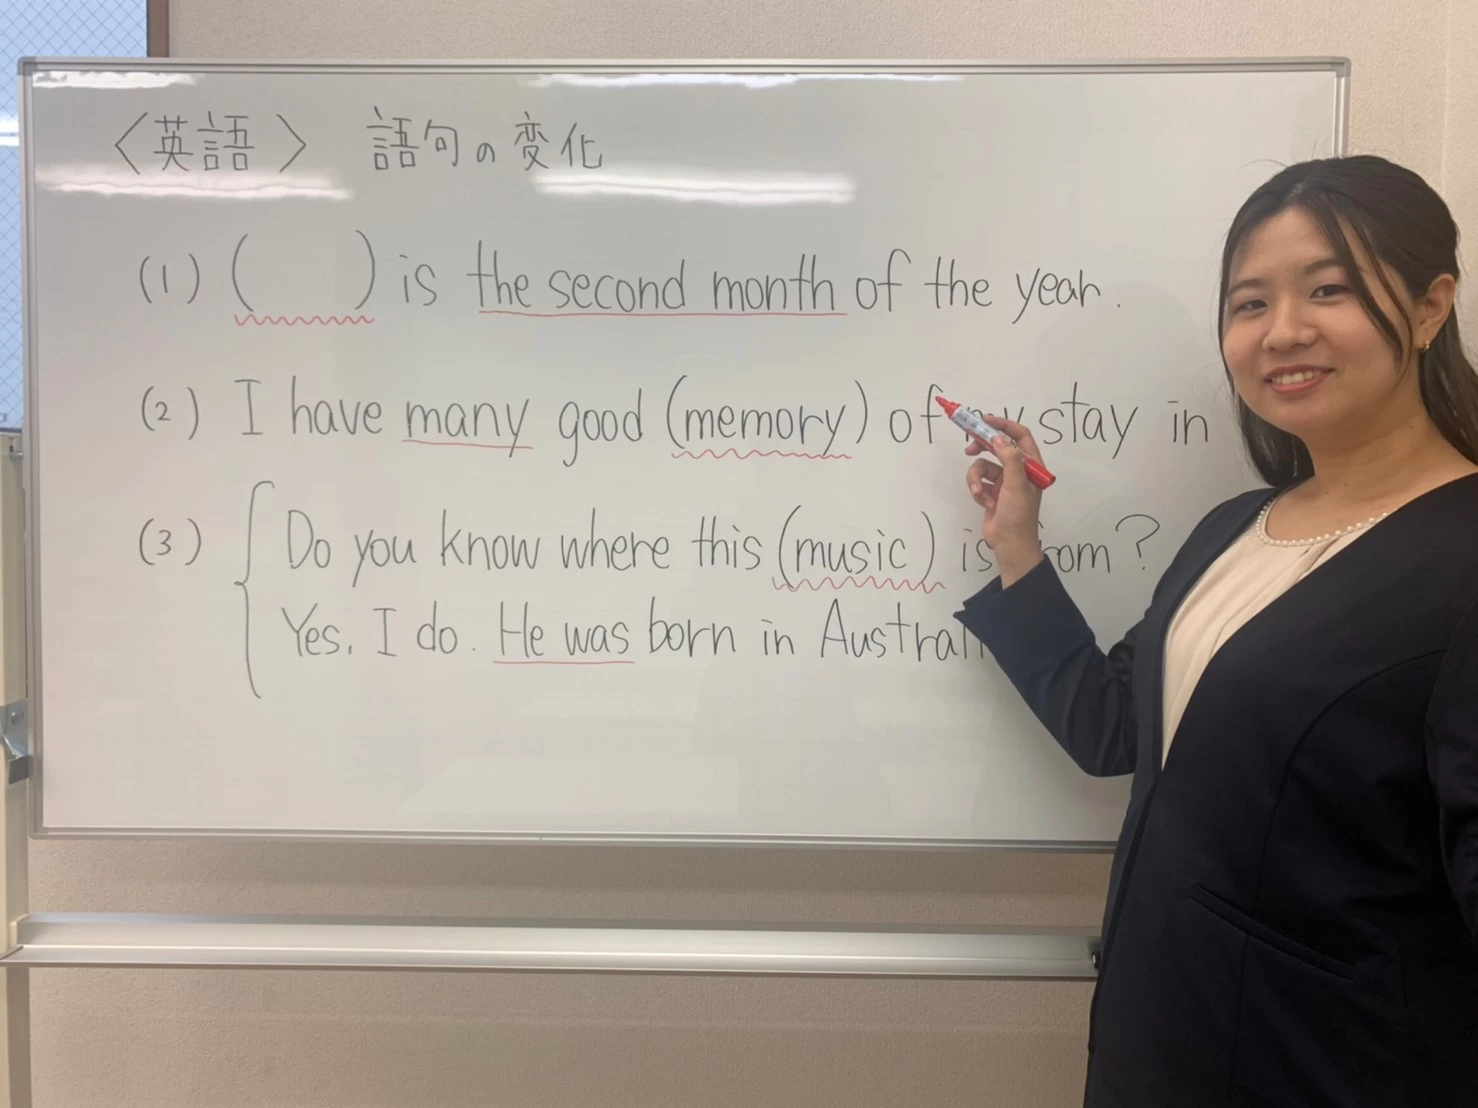 〈英語〉 語句の変化
(1) ( ) is the second month of the year.
(2) I have many good (memory) of my stay in
(3) Do you know where this (music) is from?
Yes, I do. He was born in